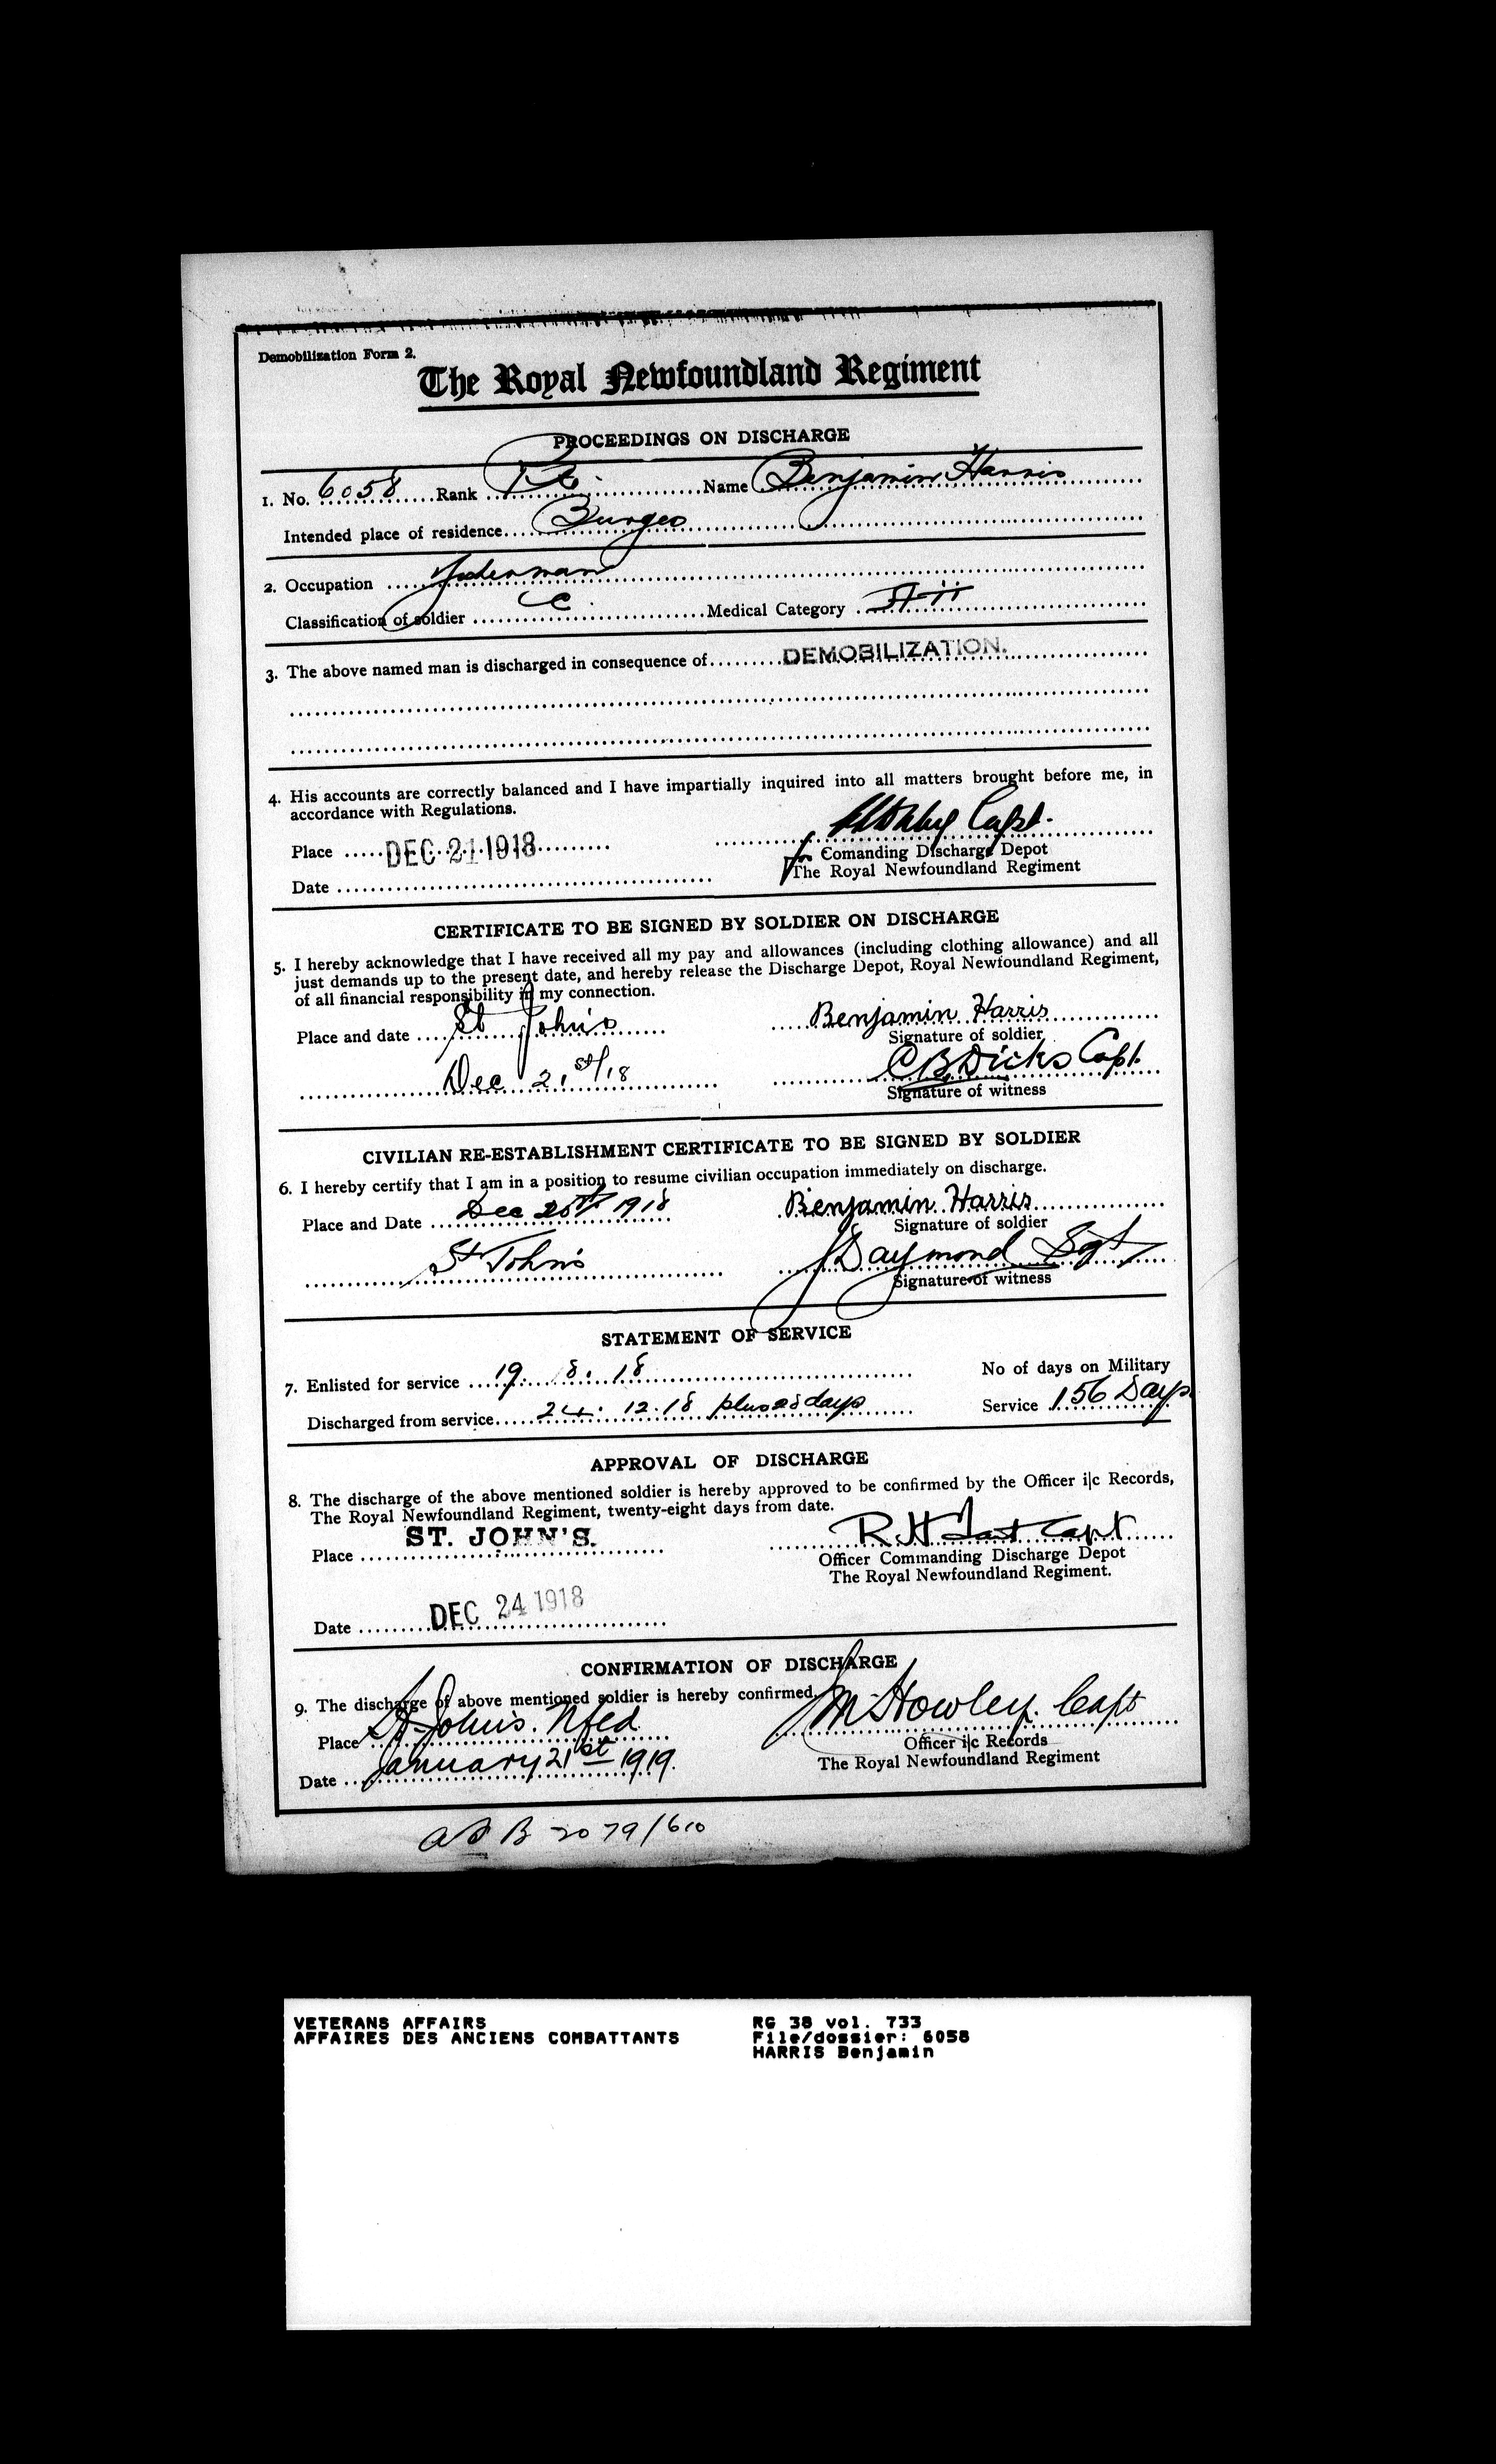 Demobilization Form 2.
The Royal Newfoundland Regiment
PROCEEDINGS ON DISCHARGE
1. No. 6058 Rank Pte. Name Benjamin Harris
Intended place of residence Burgeo
2. Occupation Fisherman
Classification of soldier C. Medical Category A ii
3. The above named man is discharged in consequence of DEMOBILIZATION.
4. His accounts are correctly balanced and I have impartially inquired into all matters brought before me, in
accordance with Regulations.
Capt.
Place DEC 21 1918
for Comanding Discharge Depot
Date
The Royal Newfoundland Regiment
CERTIFICATE TO BE SIGNED BY SOLDIER ON DISCHARGE
5. I hereby acknowledge that I have received all my pay and allowances (including clothing allowance) and all
just demands up to the present date, and hereby release the Discharge Depot, Royal Newfoundland Regiment,
of all financial responsibility in my connection.
Place and date St John's Benjamin Harris
Signature of soldier
Dec 21st/18 C B Dicks Capt.
Signature of witness
CIVILIAN RE-ESTABLISHMENT CERTIFICATE TO BE SIGNED BY SOLDIER
6. I hereby certify that I am in a position to resume civilian occupation immediately on discharge.
Place and Date Dec 20th 1918 Benjamin Harris
Signature of soldier
St John's J Daymond Sgt
Signature of witness
STATEMENT OF SERVICE
7. Enlisted for service 19. 8. 18 No of days on Military
Discharged from service 24. 12. 18 plus 28 days Service 156 Days
APPROVAL OF DISCHARGE
8. The discharge of the above mentioned soldier is hereby approved to be confirmed by the Officer i|c Records,
The Royal Newfoundland Regiment, twenty-eight days from date.
Place ST. JOHN'S. R H Tait Capt
Officer Commanding Discharge Depot
The Royal Newfoundland Regiment.
Date DEC 24 1918
CONFIRMATION OF DISCHARGE
9. The discharge of above mentioned soldier is hereby confirmed.
Place St. John's. Nfld M Howley. Capt
Officer i|c Records
Date January 21st 1919. The Royal Newfoundland Regiment
B 2079/610
VETERANS AFFAIRS RG 38 vol. 733
AFFAIRES DES ANCIENS COMBATTANTS File/dossier: 6058
HARRIS Benjamin